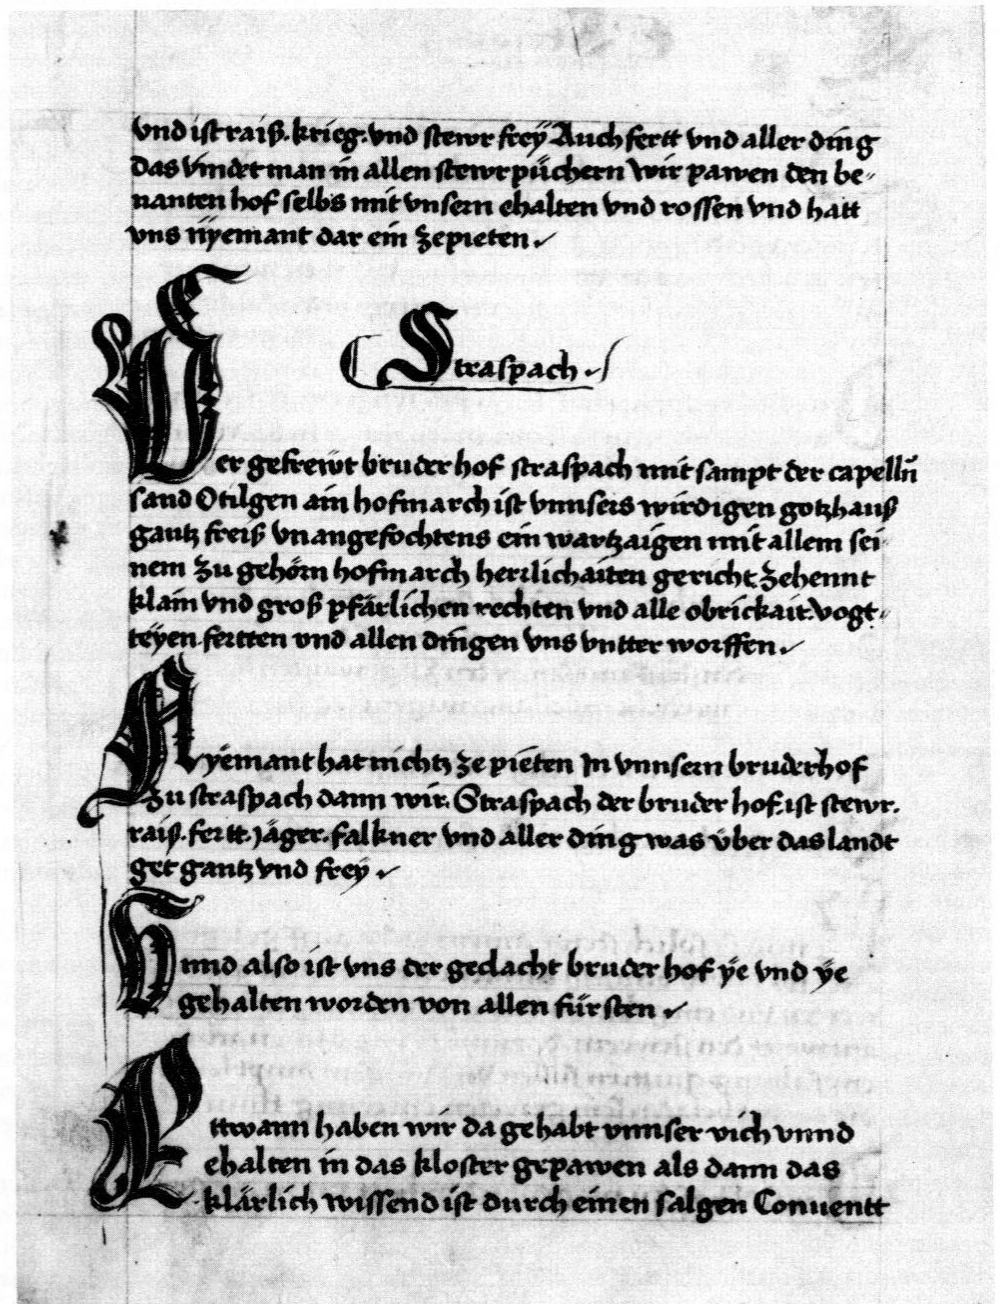 vnd ist raiß. krieg. vnd stewr freÿ Auch fertt vnd aller ding
das vindet man in allen stewrpüchern Wir pawen den be-
nanten hof selbs mit vnsern ehalten vnd rossen vnd hatt
vns nÿemant dar ein zepieten.
Straspach
Der gefrewt bruder hof straspach mit sampt der capelln̄
sand Otilgen ain hofmarch ist vnnsers wirdigen gotzhauß
gantz freiß vnangefochtens ein wartzaigen mit allem sei-
nem zu gehörn hofmarch herrlichaiten gericht zehennt
klain vnd groß pfärlichen rechten vnd alle obrickait. Vogt-
teÿen. fertten vnd allen dingen vns vntter worffen.
Nyemant hat nichtz ze pieten In vnnsern bruderhof
zu straspach dann wir. Straspach der bruder hof. ist stewr.
raiß. fertt. jäger. falkner vnd aller ding was über das landt
get gantz vnd freÿ
Vnnd also ist vns der gedacht bruder hof ÿe vnd ÿe
gehalten worden von allen fürsten
Ettwann haben wir da gehabt vnnser vich vnnd
ehalten in das kloster gepawen als dann das
klärlich wissend ist durch einen salgen Conuentt